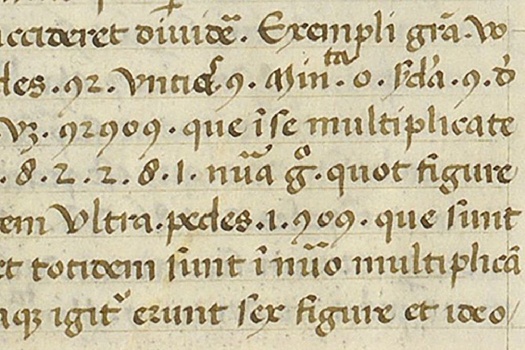 accideret diuidē. Exempli grā. vo
des. 92. vntię 9. Min^ta. 0. scđa. 9. đ
vꝫ. 92909. que īse multiplicate
. 8. 2. 2. 8. 1. nūa g̊. quot figure
em vltra. pedes. 1. 909. que sunt
et totidem sunt ī nūo multiplicā
aqꝫ igit᷑ erunt sex figure et ideo/